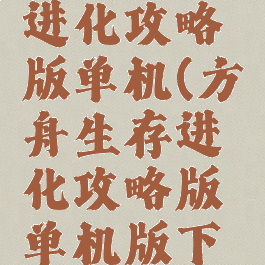 进化攻略
版单机(方
舟生存进
化攻略版
单机版下